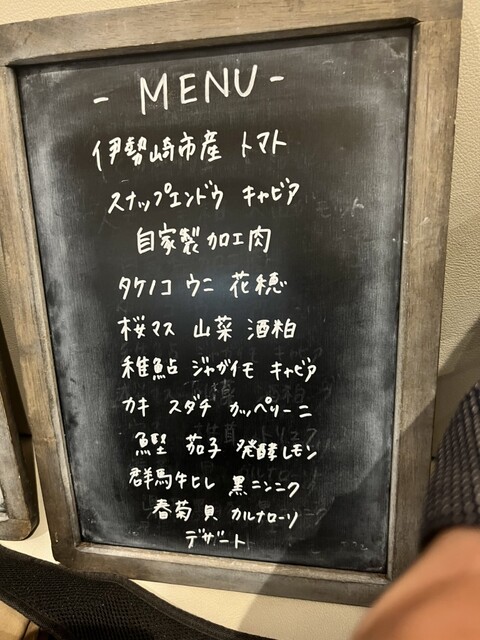 - MENU -
伊勢崎市産 トマト
スナップエンドウ キャビア
自家製加工肉
タケノコ ウニ 花穂
桜マス 山菜 酒粕
稚鮎 ジャガイモ キャビア
カキ スダチ カッペリーニ
鰹 茄子 発酵レモン
群馬牛ヒレ 黒ニンニク
春菊 貝 カルナローソ
デザート